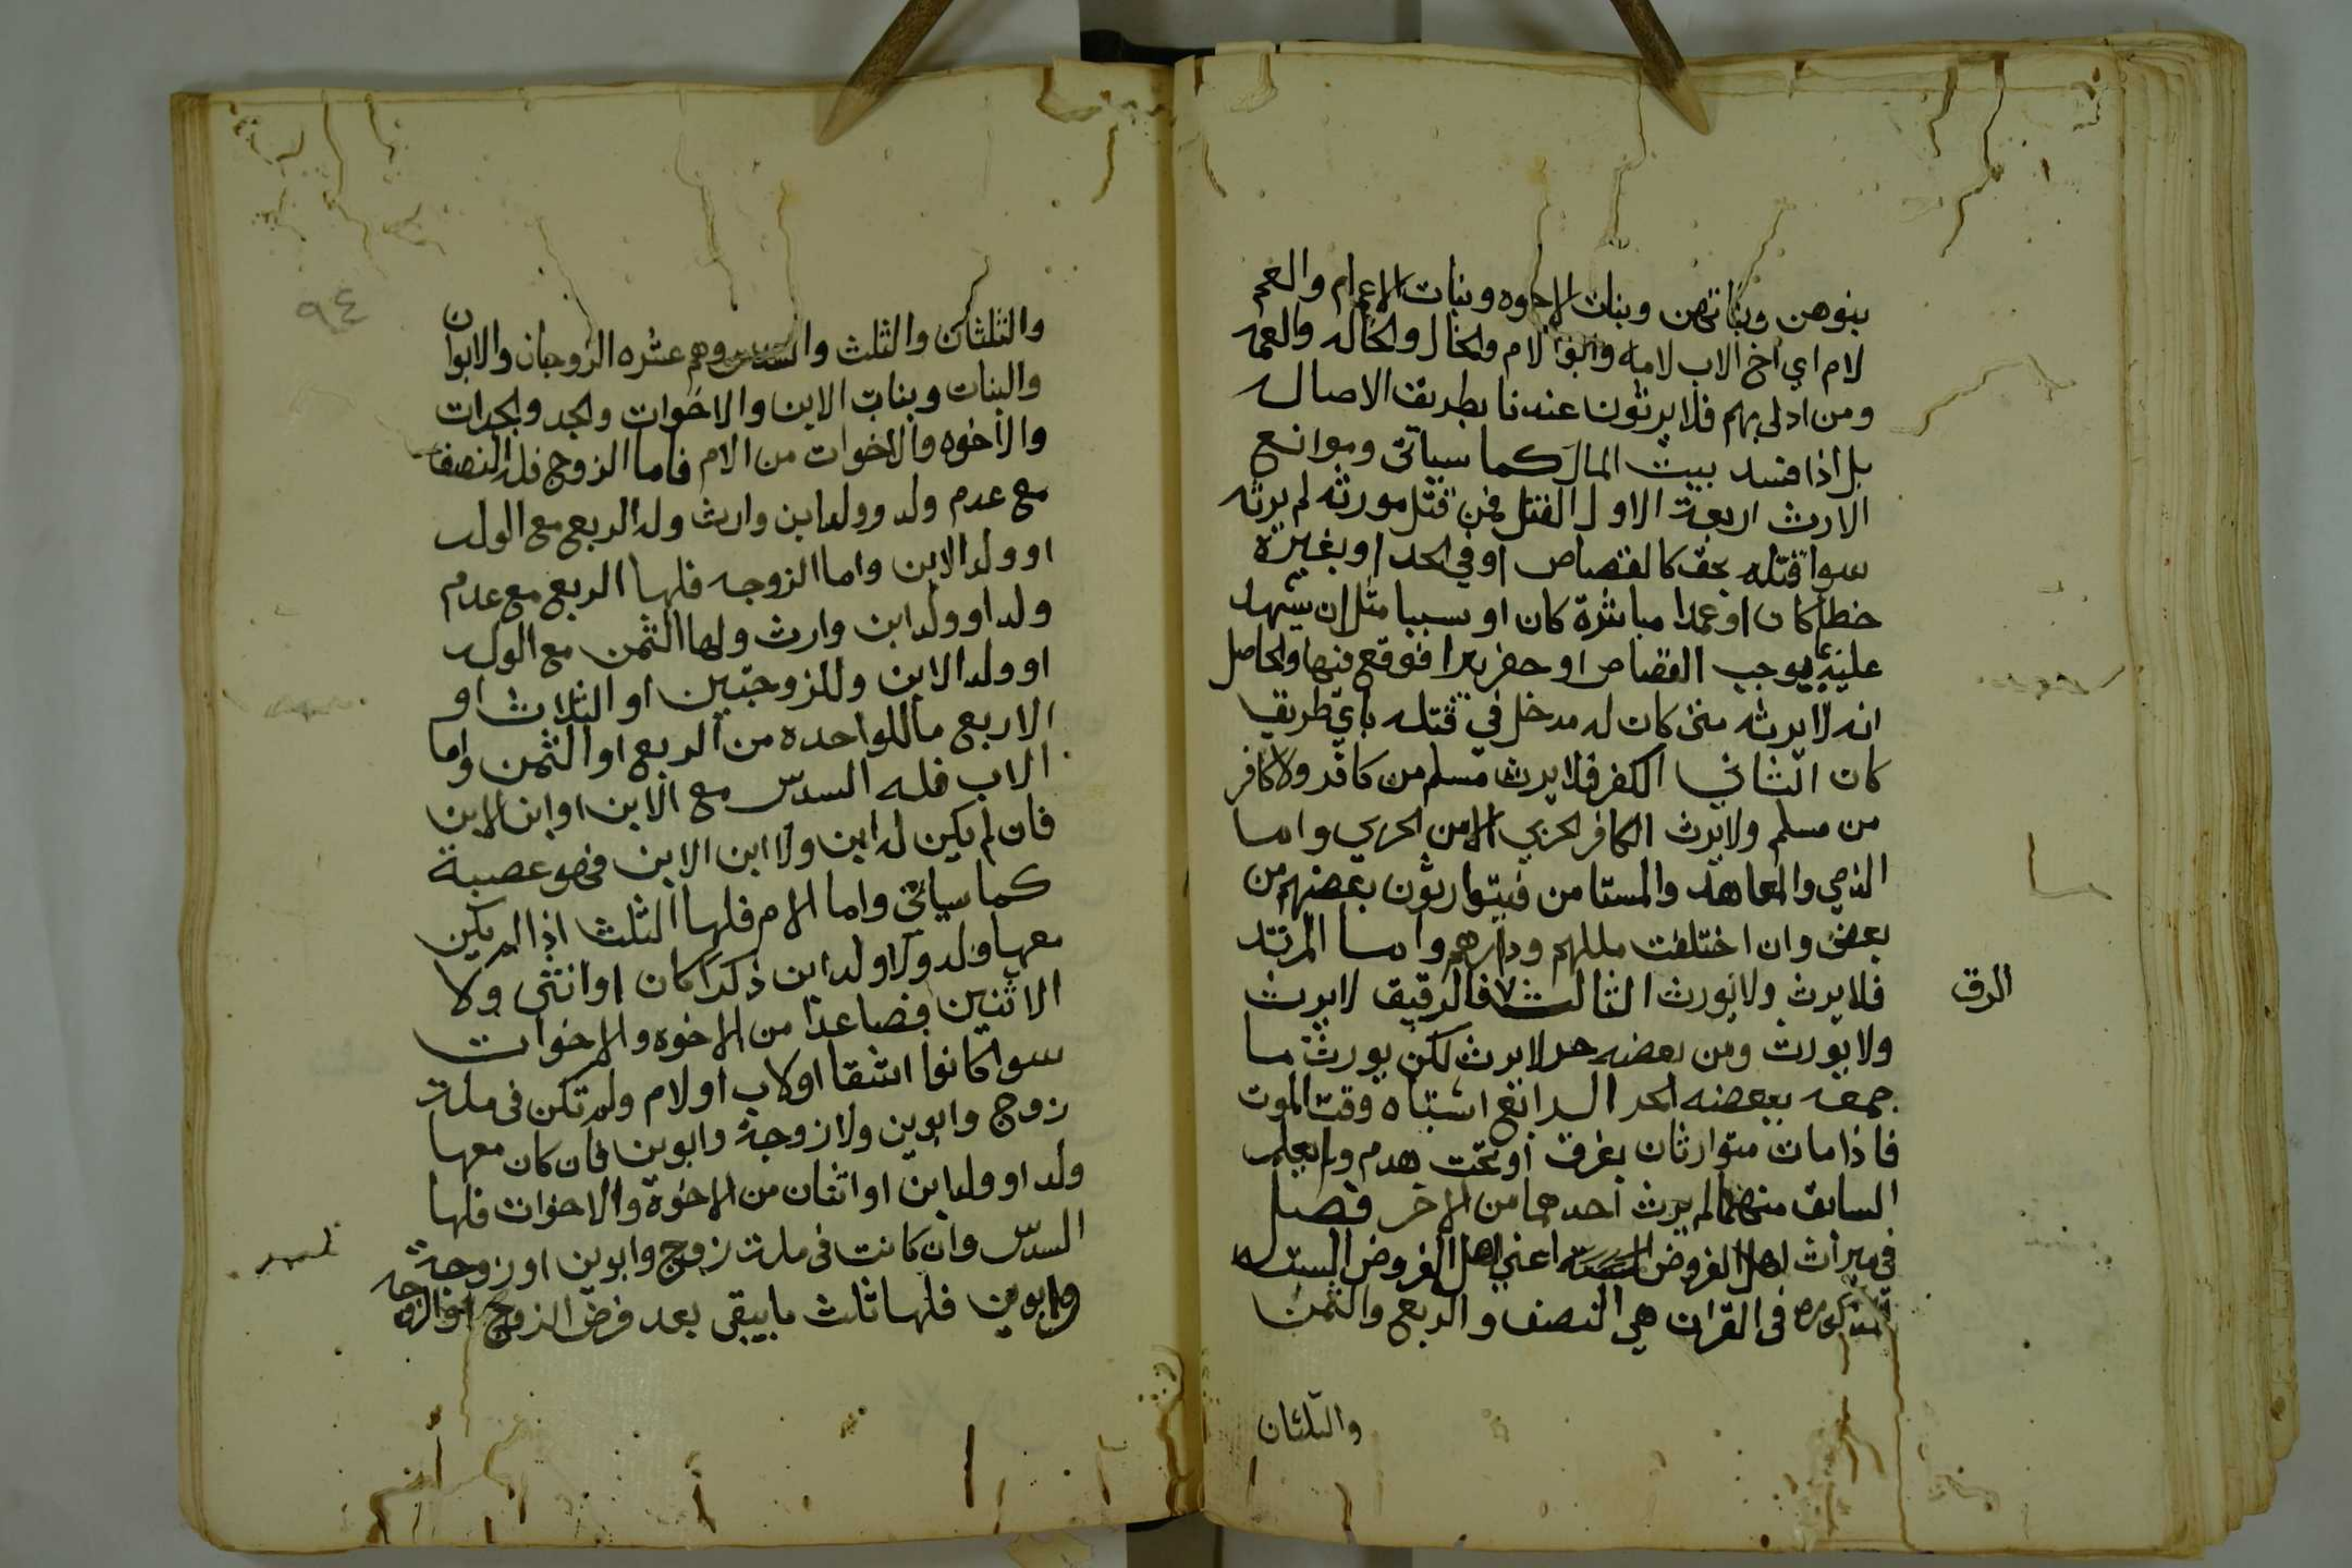 بنوهن وبناتهن وبنات الاخوه وبنات الاعمام والعم
لام اي اخ الاب لامه وابو الام والخال والخاله والعمه
ومن ادلى بهم فلا يرثون عندنا بطريق الاصاله
بل اذا فسد بيت المال كما سياتي وموانع
الارث اربعة الاول القتل فمن قتل مورثه لم يرثه
سوا قتله بحق كالقصاص او في الحد او بغيره
خطا كان او عمدا مباشرة كان او سببا مثل ان يشهد
عليه بما يوجب القصاص او حفر بيرا فوقع فيها والحاصل
انه لا يرثه متى كان له مدخل في قتله باي طريق
كان الثاني الكفر فلا يرث مسلم من كافر ولا كافر
من مسلم ولا يرث الكافر الحربي الا من الحربي واما
الذمي والمعاهد والمستامن فيتوارثون بعضهم من
بعض وان اختلفت مللهم ودارهم واما المرتد
فلا يرث ولا يورث الثالث فالرقيق لا يرث
الرق
ولا يورث ومن بعضه حر لا يرث لكن يورث ما
جمعه ببعضه الحر الرابع اشتباه وقت الموت
فاذا مات متوارثان بغرق او تحت هدم ولم يعلم
السابق منهما لم يرث احدهما من الاخر فصل
في ميراث اهل الفروض اعني اهل الفروض الستة
المذكورة في القران هي النصف والربع والثمن
والثلثان
٩٤
والثلثان والثلث والسدس وهم عشره الزوجان والابوان
والبنات وبنات الابن والاخوات والجد والجدات
والاخوه والاخوات من الام فاما الزوج فله النصف
مع عدم ولد وولد ابن وارث وله الربع مع الولد
او ولد الابن واما الزوجه فلها الربع مع عدم
ولد او ولد ابن وارث ولها الثمن مع الولد
او ولد الابن وللزوجتين او الثلاث او
الاربع ما للواحده من الربع او الثمن واما
الاب فله السدس مع الابن او ابن الابن
فان لم يكن له ابن ولا ابن الابن فهو عصبة
كما سياتي واما الام فلها الثلث اذا لم يكن
معها ولد ولا ولد ابن ذكرا كان او انثى ولا
الاثنين فصاعدا من الاخوه والاخوات
سوا كانوا اشقا او لاب او لام ولم تكن في ملة
زوج وابوين ولا زوجة وابوين فان كان معها
ولد او ولد ابن او اثنان من الاخوة والاخوات فلها
السدس وان كانت في ملة زوج وابوين او زوجة
وابوين فلها ثلث ما يبقى بعد فرض الزوج او الزوجه